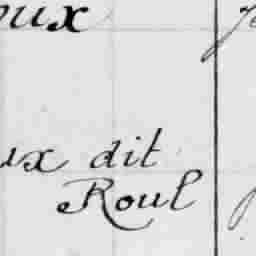 oux
ux dit
Roul